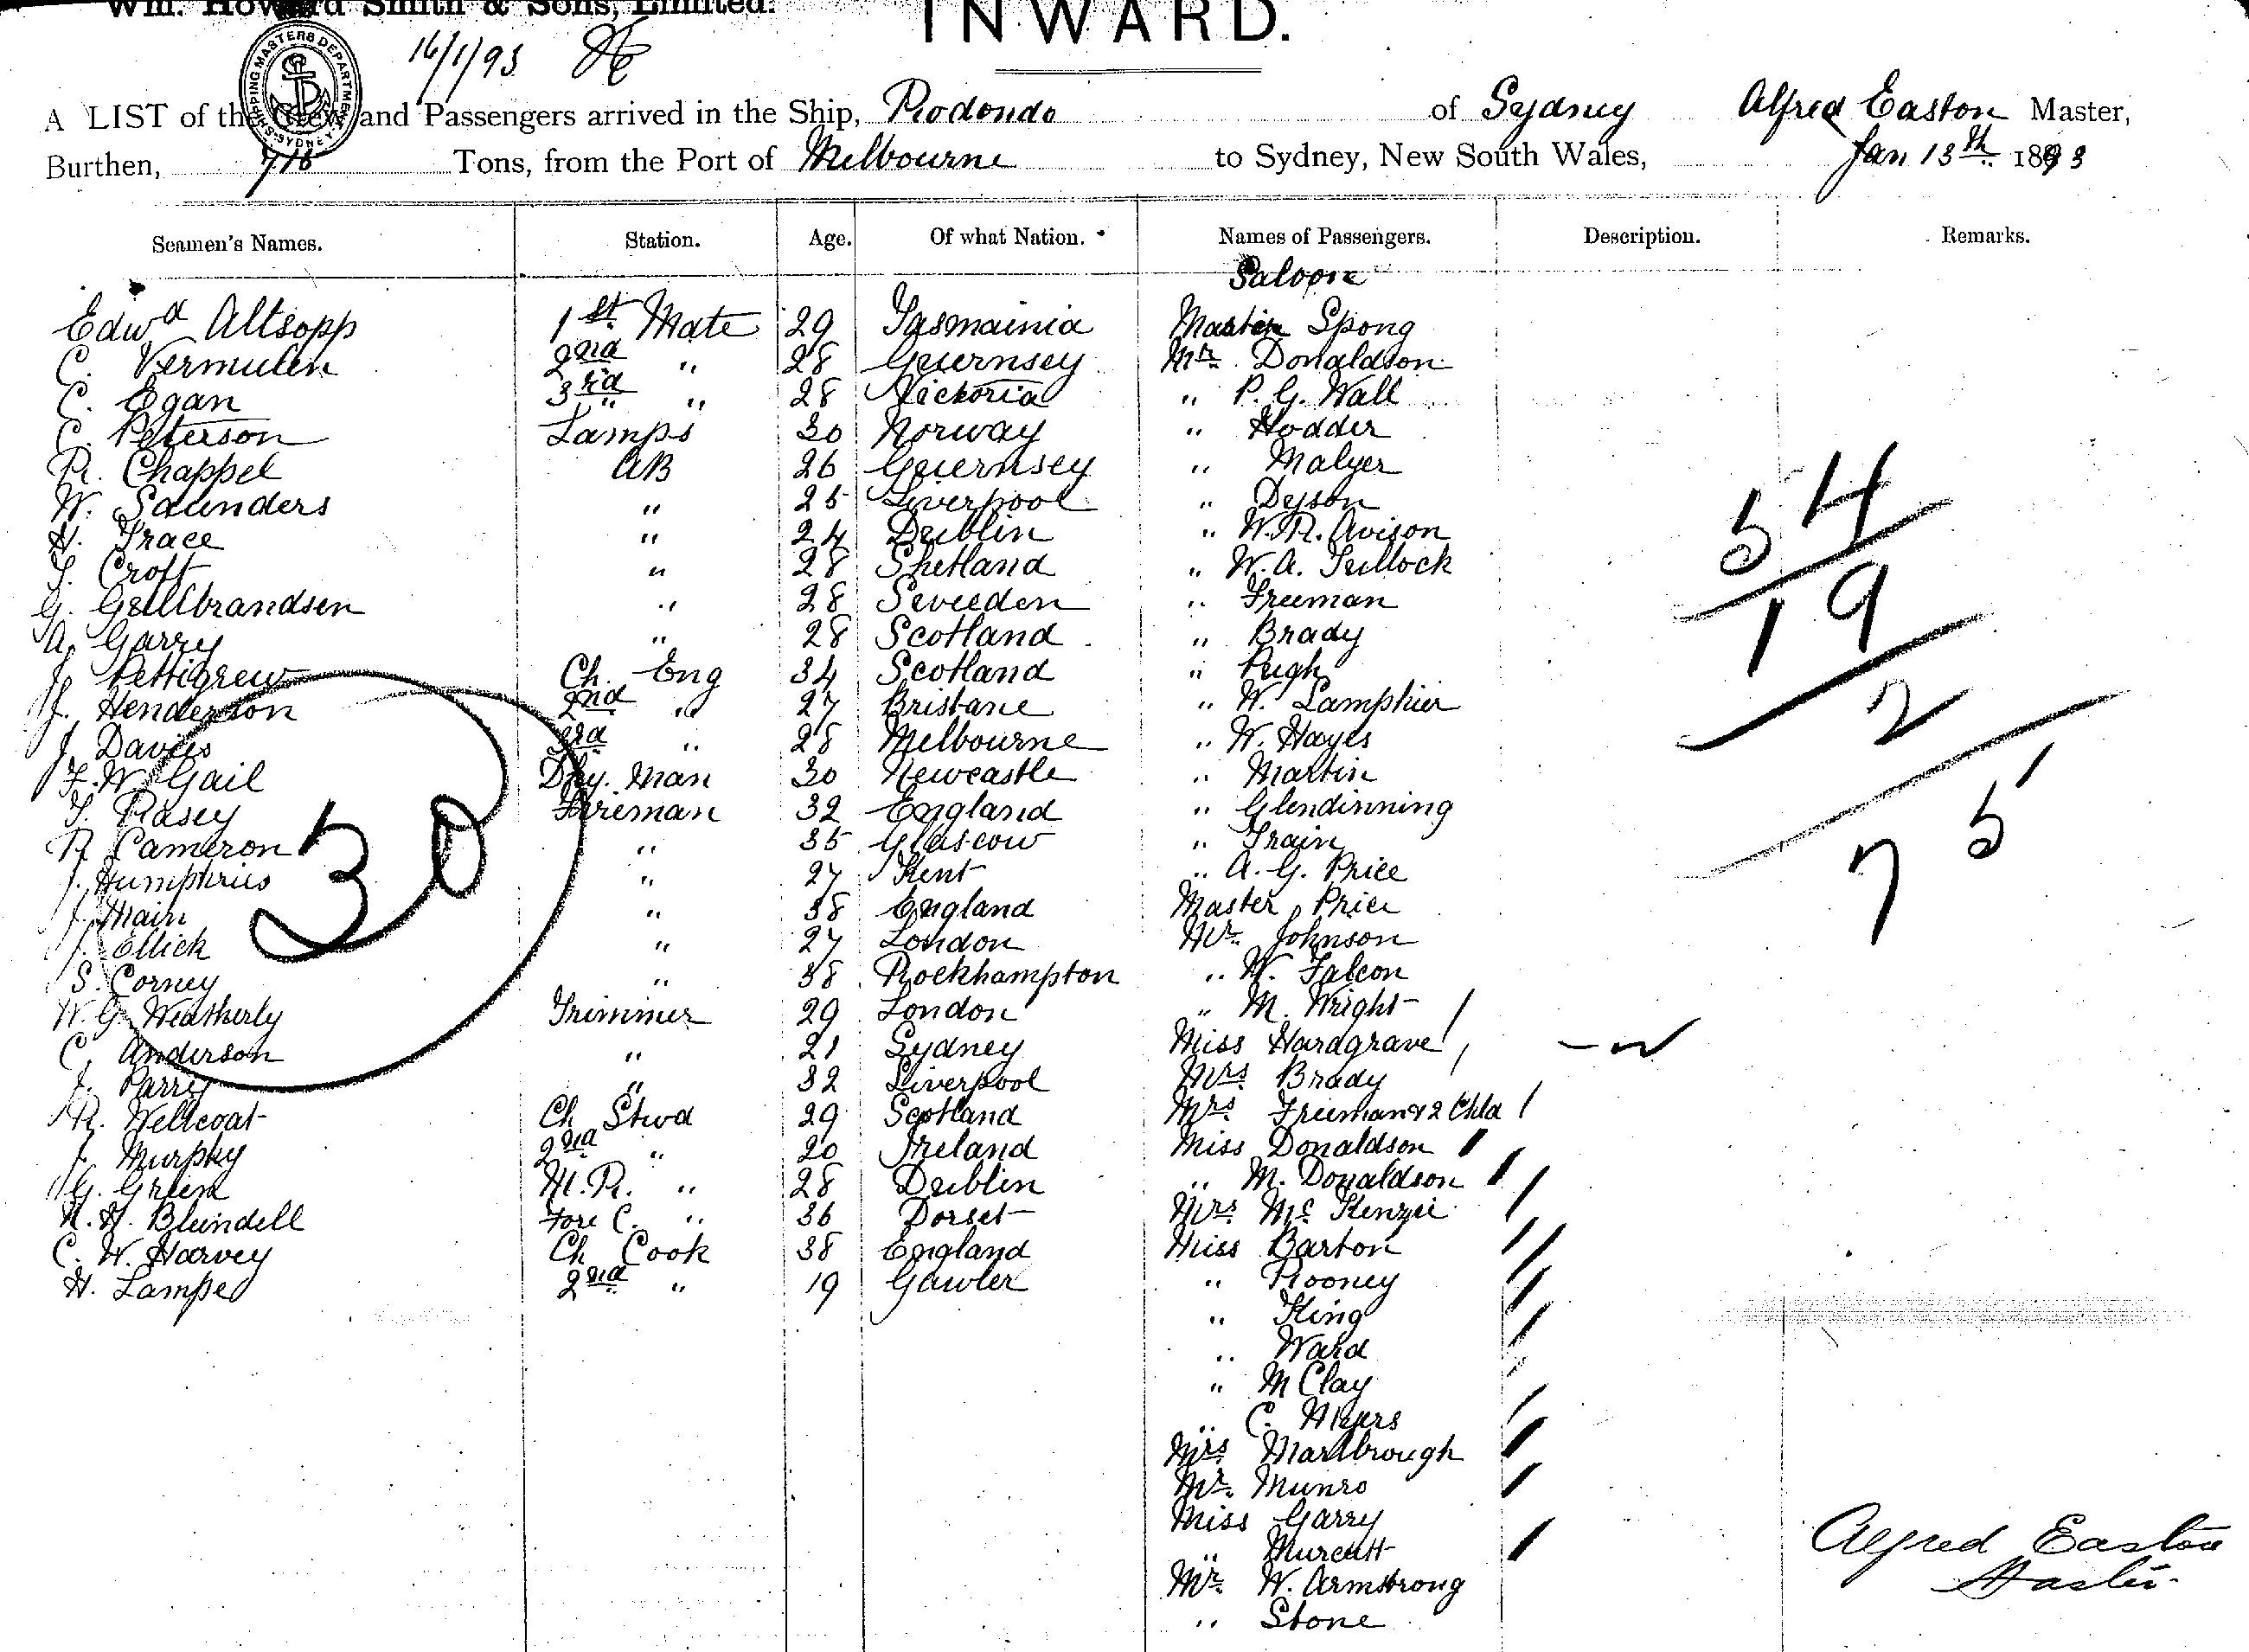 Wm. Howard Smith & Sons, Limited.
INWARD.
16/1/93
SHIPPING MASTERS DEPARTMENT SYDNEY
A LIST of the Crew and Passengers arrived in the Ship, Rodondo of Sydney Alfred Easton Master,
Burthen, 718 Tons, from the Port of Melbourne to Sydney, New South Wales, Jan 13th 1893
Seamen's Names. Station. Age. Of what Nation. Names of Passengers. Description. Remarks.
Saloon
Edwd Altsopp 1st Mate 29 Tasmainia Master Spong
C. Vermulen 2nd " 28 Guernsey Mr Donaldson
C. Egan 3rd " 28 Victoria " P. G. Wall
C. Peterson Lamps 30 Norway " Hodder
R. Chappel AB 26 Guernsey " Malyer
W. Saunders " 25 Liverpool " Dyson
H. Grace " 24 Dublin " W. R. Avison
T. Croft " 28 Shetland " W. A. Tullock
G. Gullbrandsen " 28 Sweeden " Freeman
A. Garry " 28 Scotland " Brady
J. Pettigrew Ch. Eng 34 Scotland " Pugh
J. Henderson 2nd " 27 Brisbane " W. Lamphier
J. Davies 3rd " 28 Melbourne " W. Hayes
F. W. Gail Dky. Man 30 Newcastle " Martin
T. Rasey Fireman 32 England " Glendinning
R. Cameron " 35 Glascow " Train
J. Humphries " 27 Kent " A. G. Price
J. Main " 38 England Master Price
J. Ellick " 27 London Mr. Johnson
S. Corney " 38 Rockhampton " W. Falcon
W. G. Weatherly Trimmer 29 London " M. Wright
C. Anderson " 21 Sydney Miss Hardgrave
J. Parry " 32 Liverpool Mrs Brady
R. Wellcoat Ch Stwd 29 Scotland Mrs Freeman & 2 Chld
J. Murphy 2nd " 20 Ireland Miss Donaldson
G. Green M.R. " 28 Dublin " M. Donaldson
H. Blundell Fore C. " 36 Dorset Mrs Mc Kenzie
C. W. Harvey Ch Cook 38 England Miss Barton
H. Lampe 2nd " 19 Gawler " Rooney
" King
" Ward
" M Clay
" C. Myers
Mrs Marlbrough
Mr. Munro
Miss Garry
" Murcutt
Mr. W. Armstrong
" Stone
30
54
19
2
75
Alfred Easton
Master